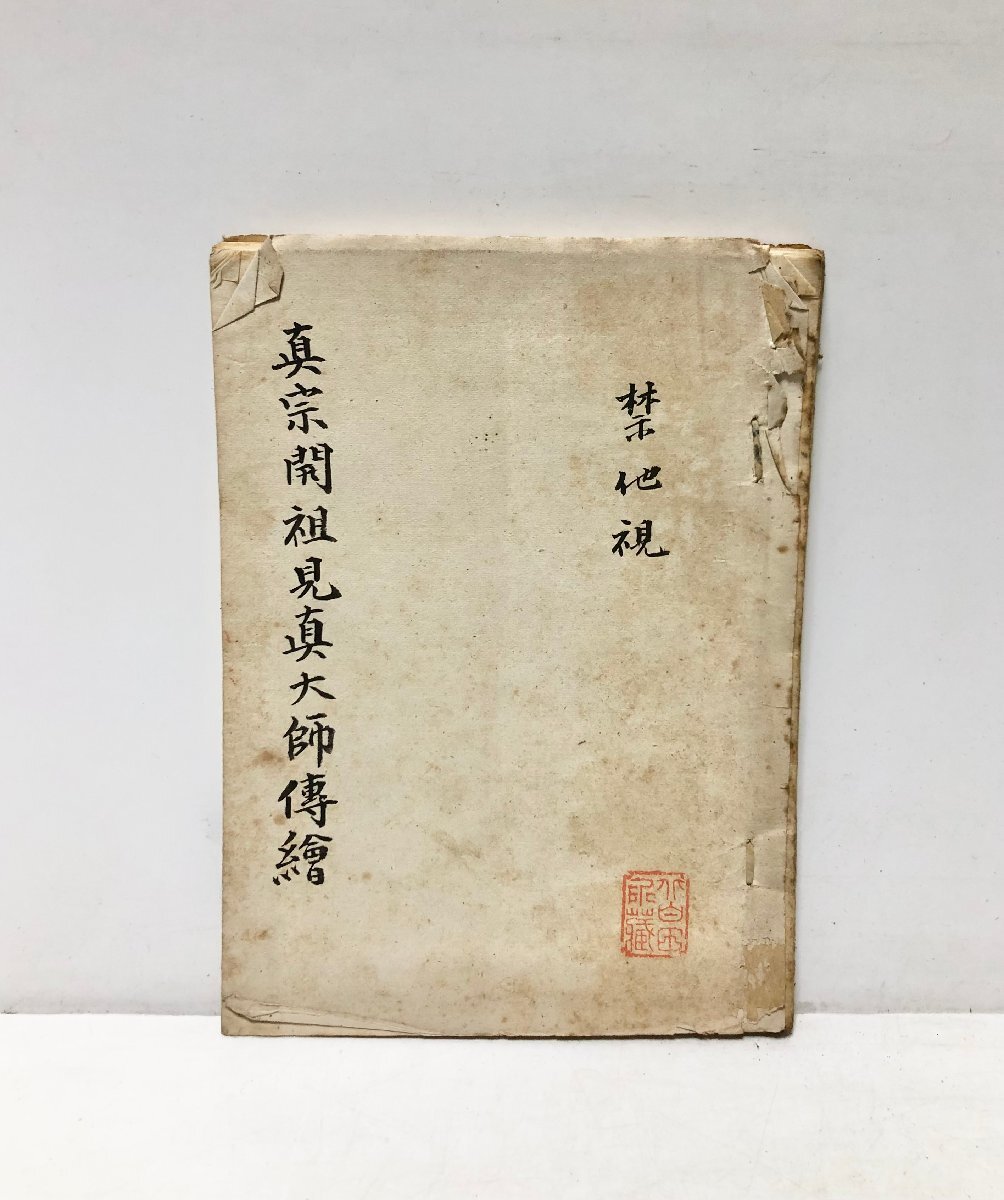 禁他視
真宗開祖見真大師傳繪